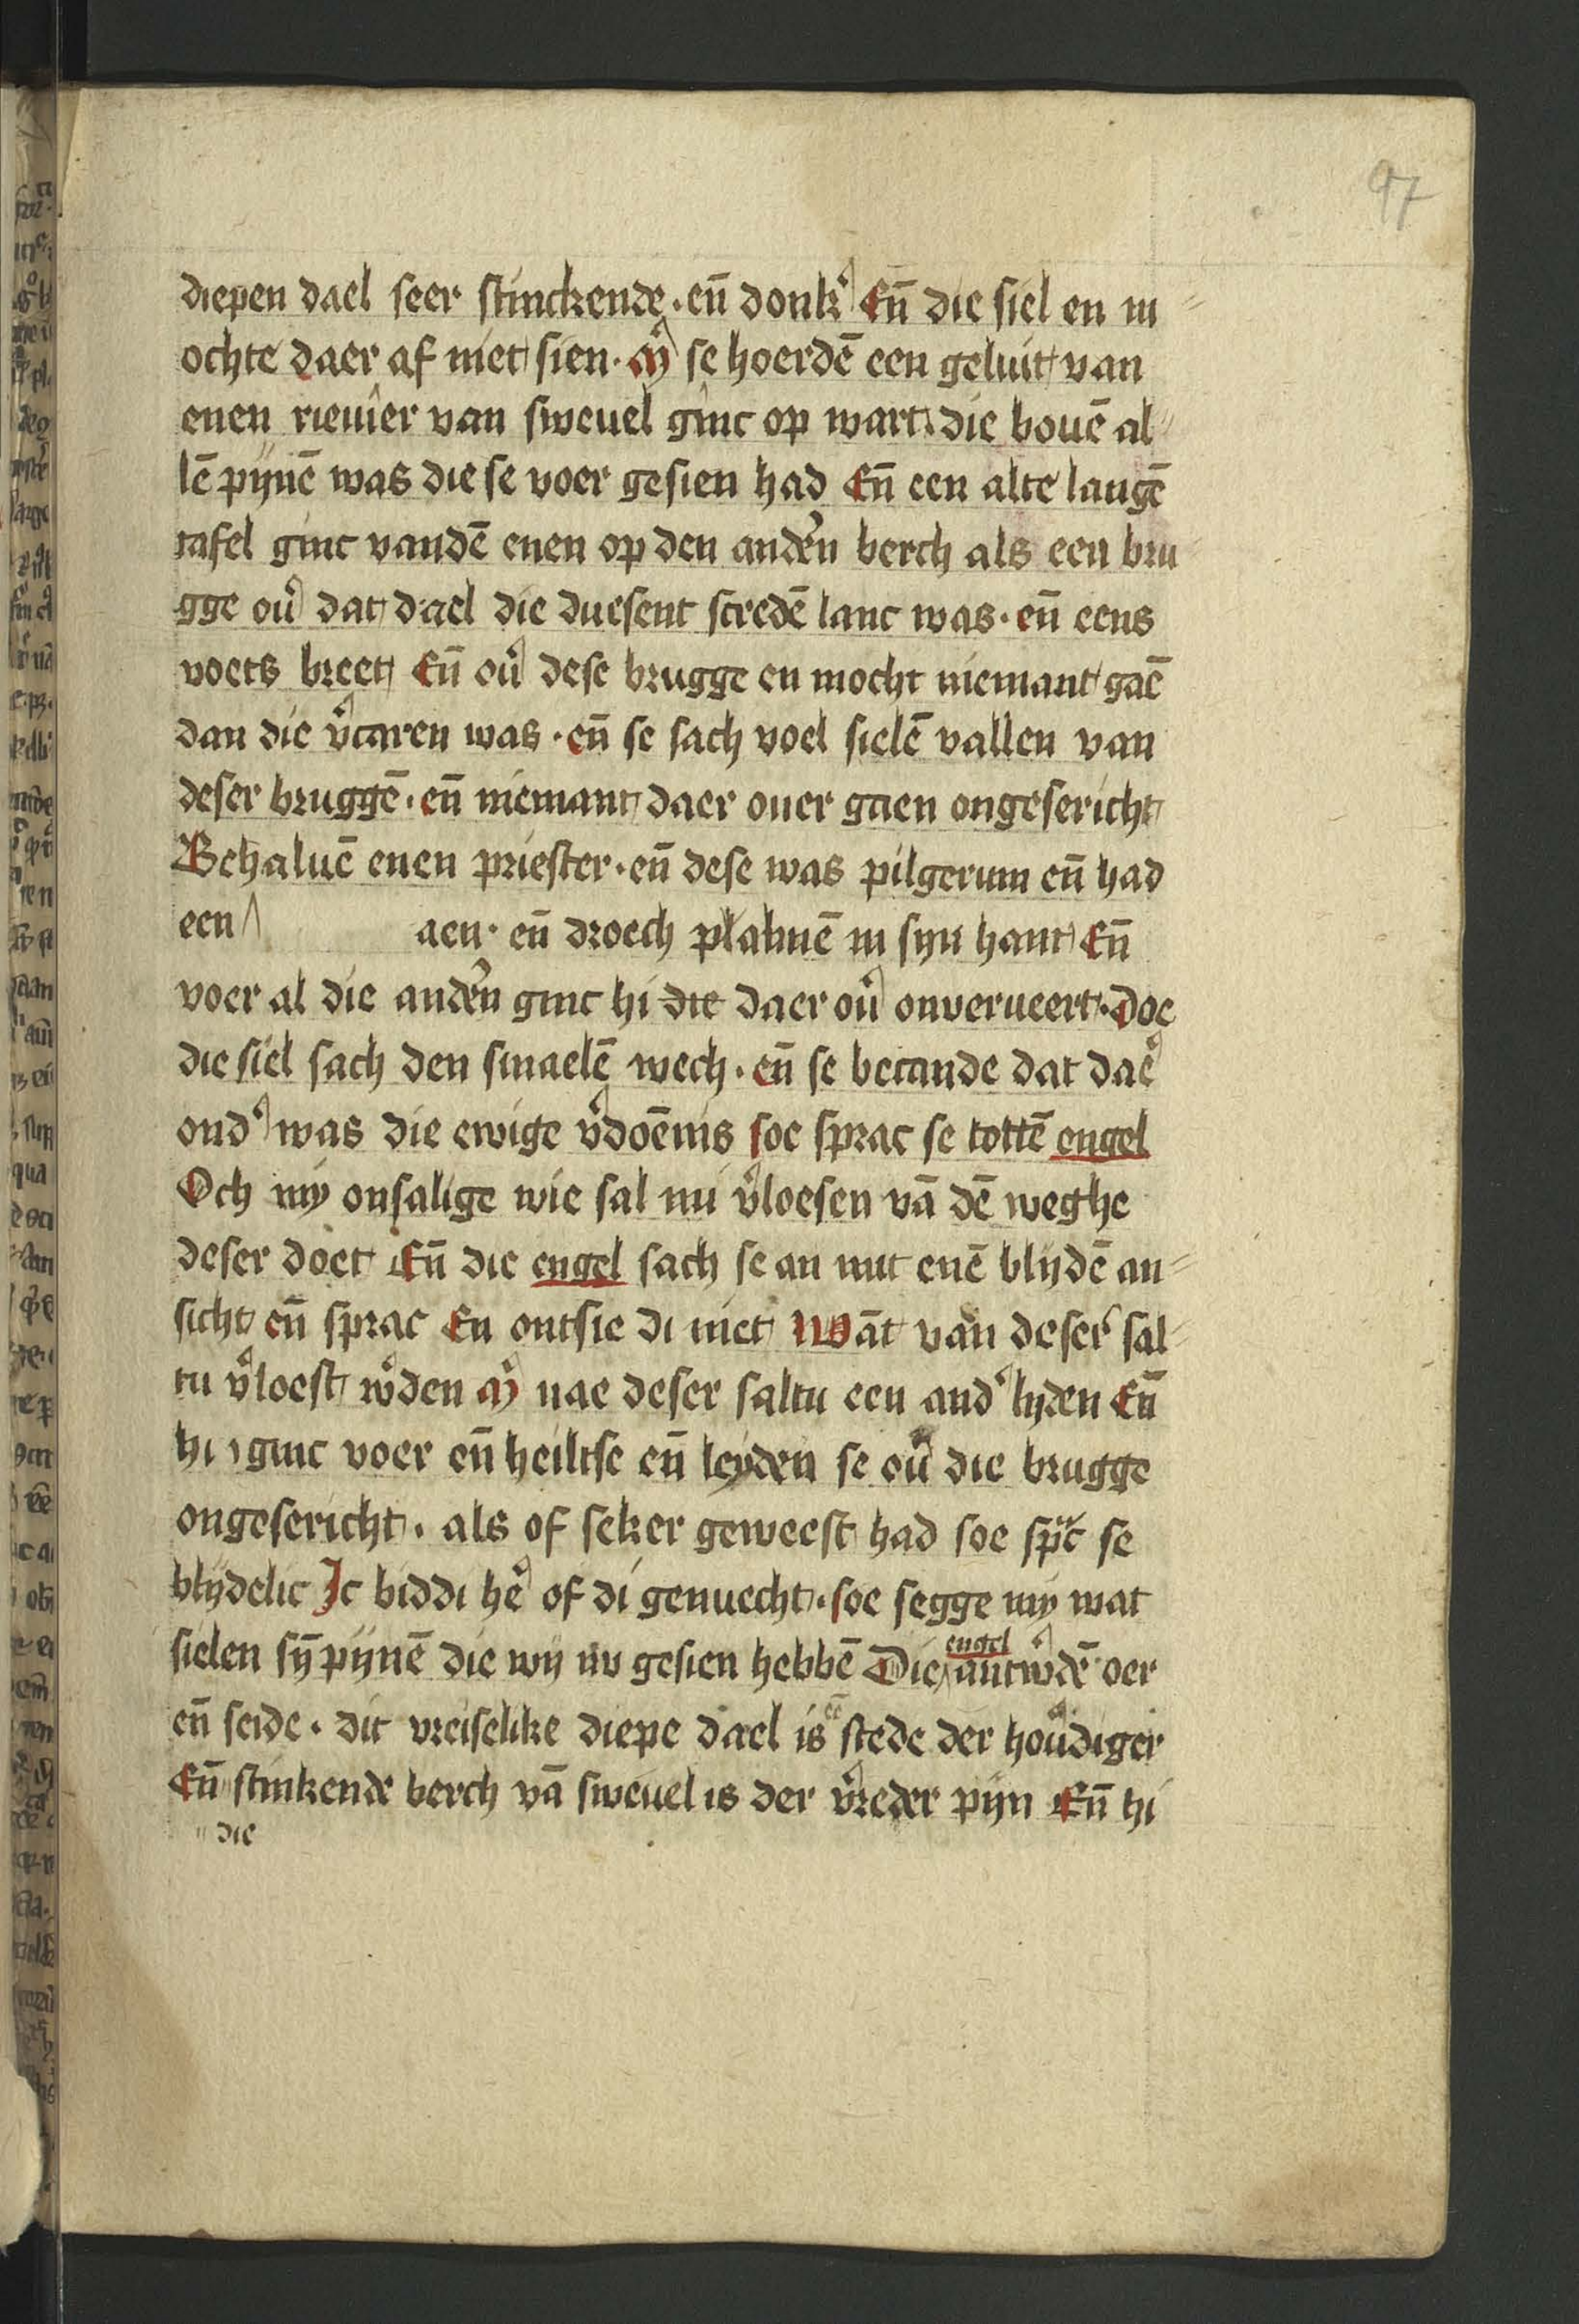 97
diepen dael seer stinckende · en̄ donk͛ En̄ die siel en m
ochte daer af niet sien · M͛ se hoerdē een geluit van
enen rieuier van sweuel ginc op wart die bouē al
lē pijnē was die se voer gesien had En̄ een alte langē
tafel ginc vandē enen op den and͛en berch als een bru
gge ou͛ dat dael die duesent scredē lanc was · en̄ eens
voets breet En̄ ou͛ dese brugge en mocht niemant gaē
dan die v͛caren was · en̄ se sach voel sielē vallen van
deser bruggē · en̄ niemant daer ouer gaen ongesericht
Behaluē enen priester · en̄ dese was pilgerum en̄ had
een aen · en̄ droech plalmē in syn hant En̄
voer al die and͛en ginc hi die daer ou͛ onverueert · Doe
die siel sach den smaelē wech · en̄ se becande dat dae͛
ond͛ was die ewige v͛doēnis soe sprac se tottē engel
Och my onsalige wie sal mi v͛loesen vā dē weghe
deser doet En̄ die engel sach se an mit enē blydē an
sicht en̄ sprac En ontsie di niet Wāt van deser sal
tu v͛loest w͛den M͛ nae deser saltu een and͛ lyden En̄
hi ginc voer en̄ heiltse en̄ leyden se ou͛ die brugge
ongesericht · als of seker geweest had soe sp͛c se
blydelic Ic biddi he͛ of di genuecht · soe segge my wat
sielen sȳ pijnē die wy nv gesien hebbē Die engel antw͛dē oer
en̄ seide · dit vreiselike diepe dael is ē stede der hou͛diger
En̄ stinkende berch vā sweuel is der v͛reder pijn En̄ hi
die